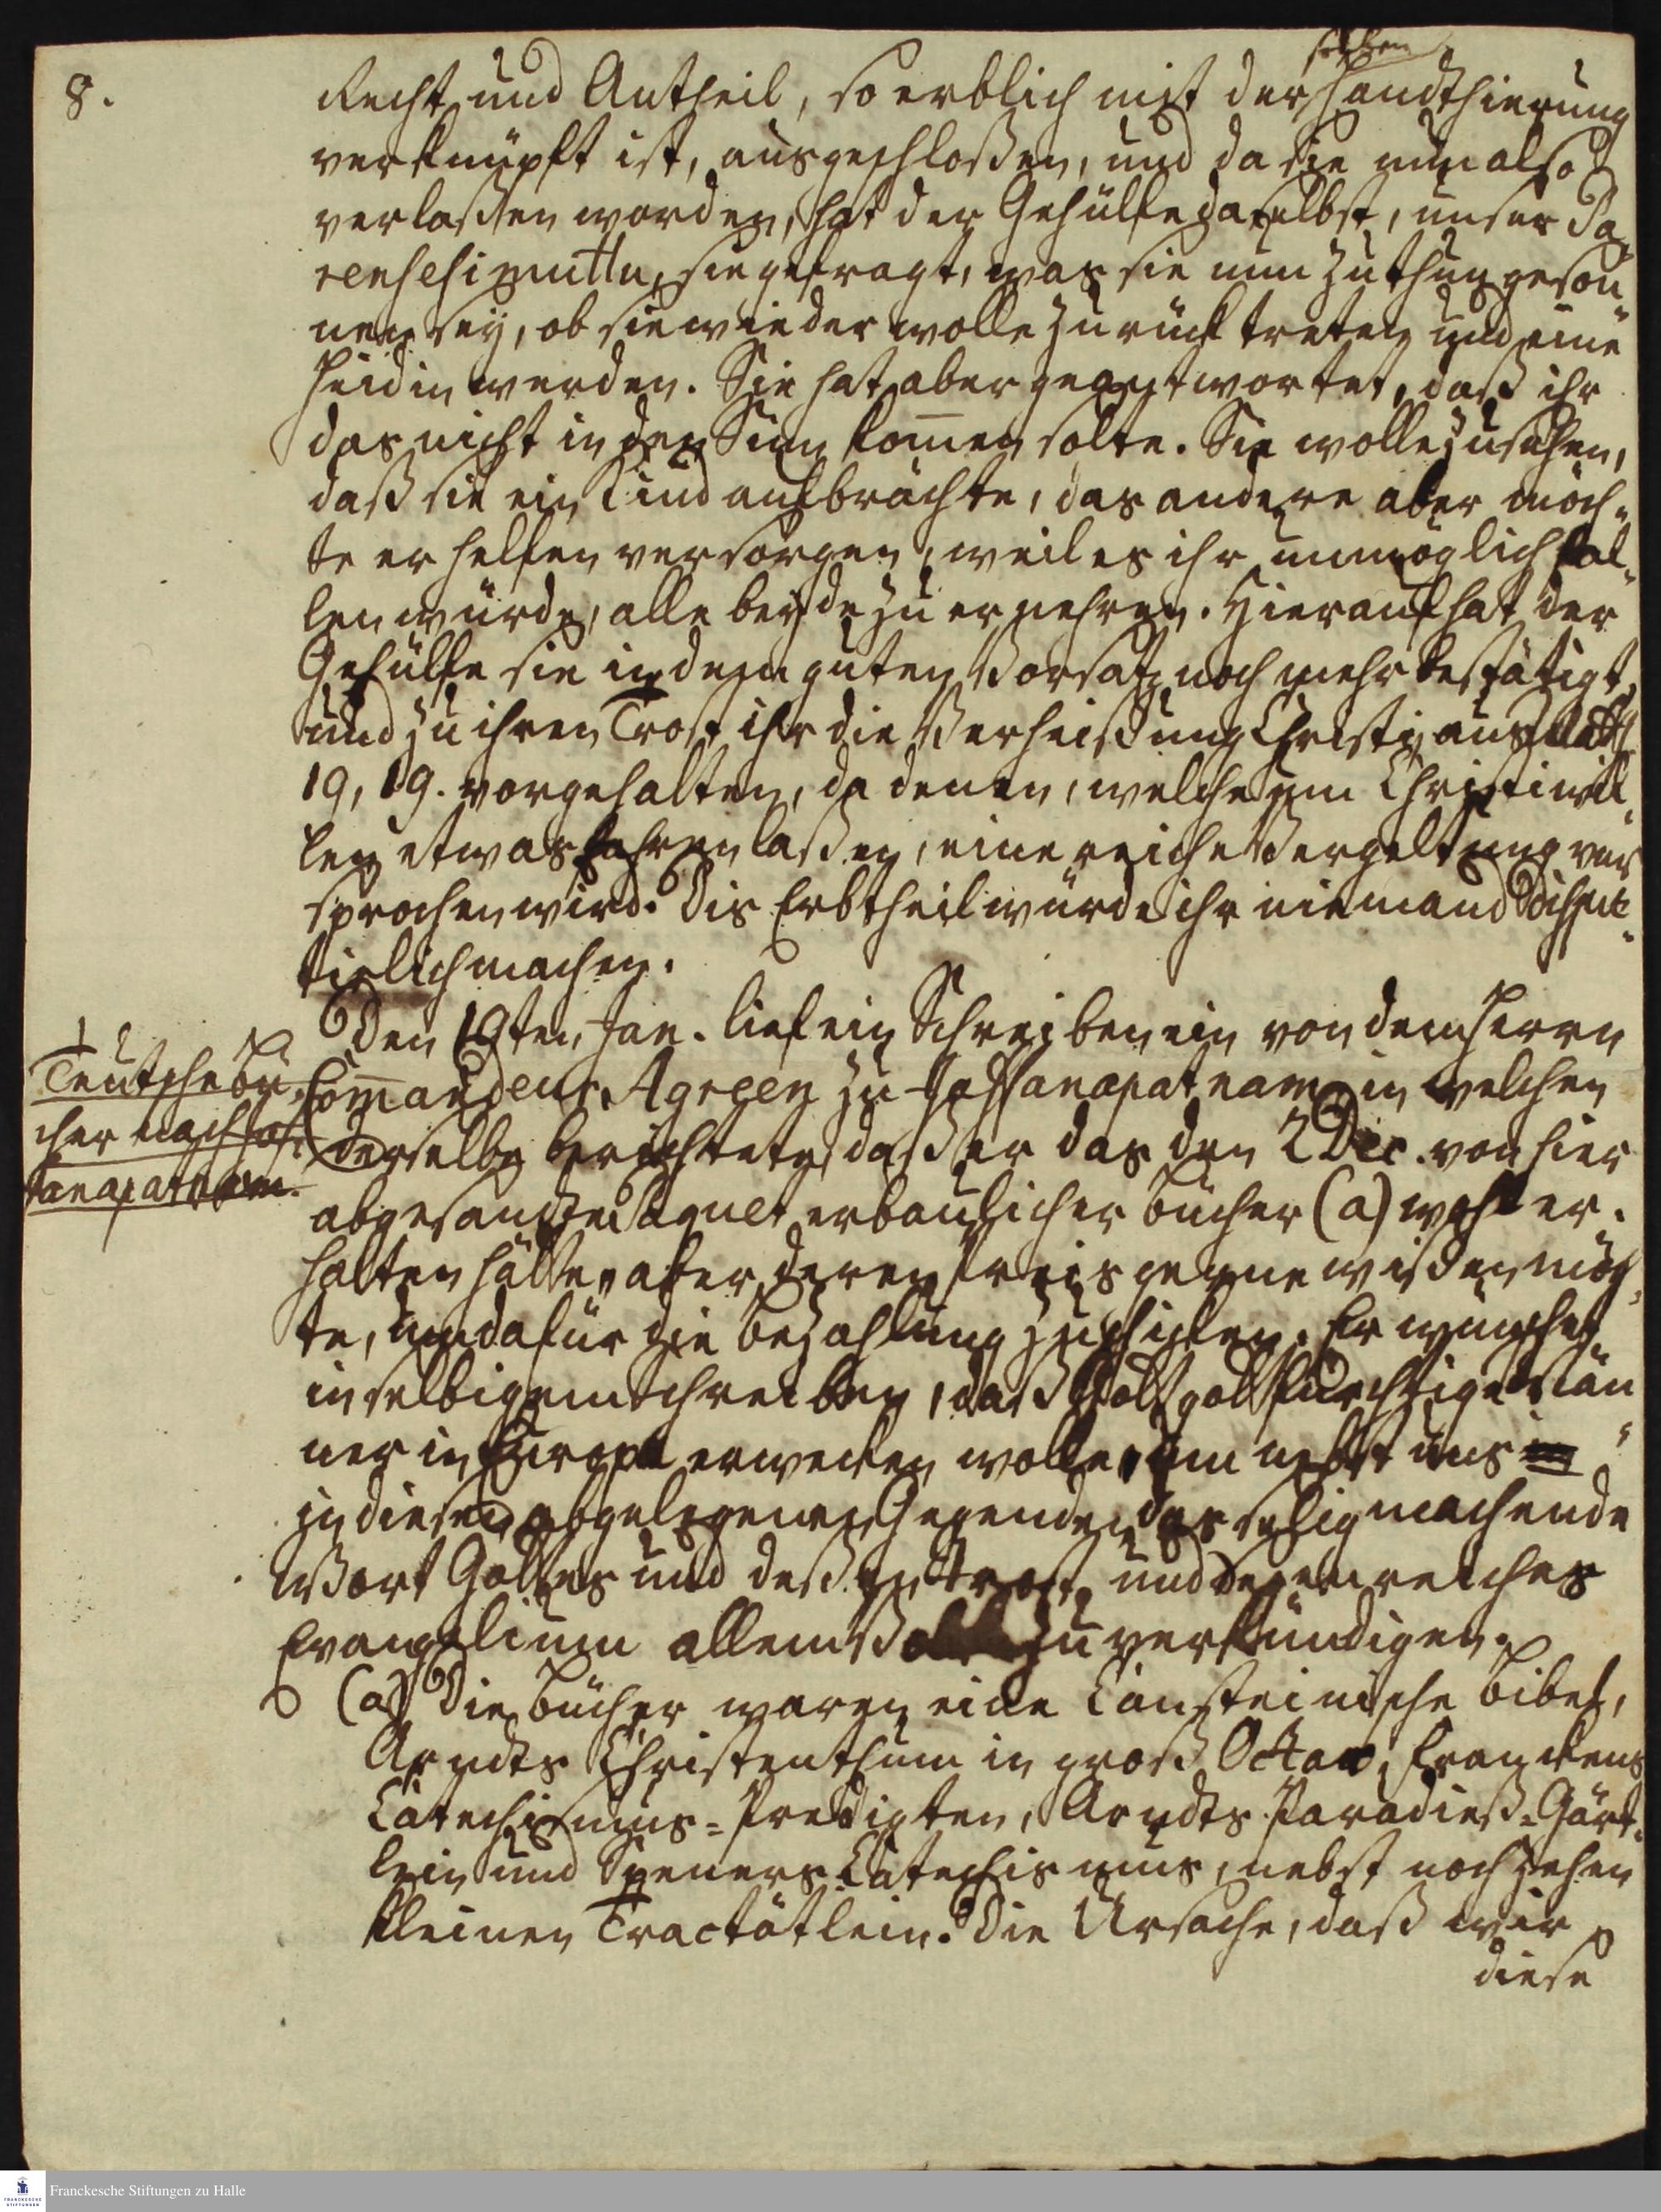 8.
solchen
Recht und Antheil, so erblich mit der Handthierung
verknüpft ist, ausgeschloßen, und da sie nun also
verlaßen worden, hat der Gehülfe daselbst, unser Pa¬
renschimuttu, sie gefragt, was sie nun zu thun geson¬
nen sey, ob sie wieder wolle zurück treten und eine
Heidin werden. Sie hat aber geantwortet, daß ihr
das nicht in den Sinn kom̄en solte. Sie wolle zusehen,
daß sie ein Kind aufbrächte, das andere aber möch¬
te er helfen versorgen, weil es ihr unmöglich fal¬
len würde, alle beyde zu ernehren. Hierauf hat der
Gehülfe sie in dem guten Vorsatz noch mehr bestätigt,
und zu ihren Trost ihr die Verheißung Christi aus Matth.
19, 19. vorgehalten, da denen, welche um Christi wil¬
len etwas fahren laßen, eine reiche Vergeltung ver
sprochen wird. Dis Erbtheil würde ihr niemand dispu¬
tirlich machen.
Den 19ten Jan. lief ein Schreiben ein von dem Herrn
Teutsche Bü¬
cher nach Jaf¬
fanapatnam.
Com̄andeur Agreen zu Jaffanapatnam, in welchen
derselbe berichtete, daß er das den 2 Dec. von hier
abgesandte Paquet erbaulicher Bücher (a) wohl er¬
halten hätte, aber deren Preis gerne wißen möch¬
te, um dafür die Bezahlung zu schicken. Er wünschet
in selbigem Schreiben, daß Gott gottsfürchtige Män¬
ner in Europa erwecken wolle, um nebst uns
in diesen abgelegenen Gegenden das seligmachende
Wort Gottes und deßen trost- und segenreiches
Evangelium allem Volk zu verkündigen.
(a) Die Bücher waren eine Cansteinische Bibel,
Arndts Christenthum in groß Octav, Franckens
Catechismus=Predigten, Arndts Paradieß=Gärt¬
lein und Speners Catechismus, nebst noch zehen
kleinen Tractätlein. Die Ursache, daß wir
diese
Franckesche Stiftungen zu Halle